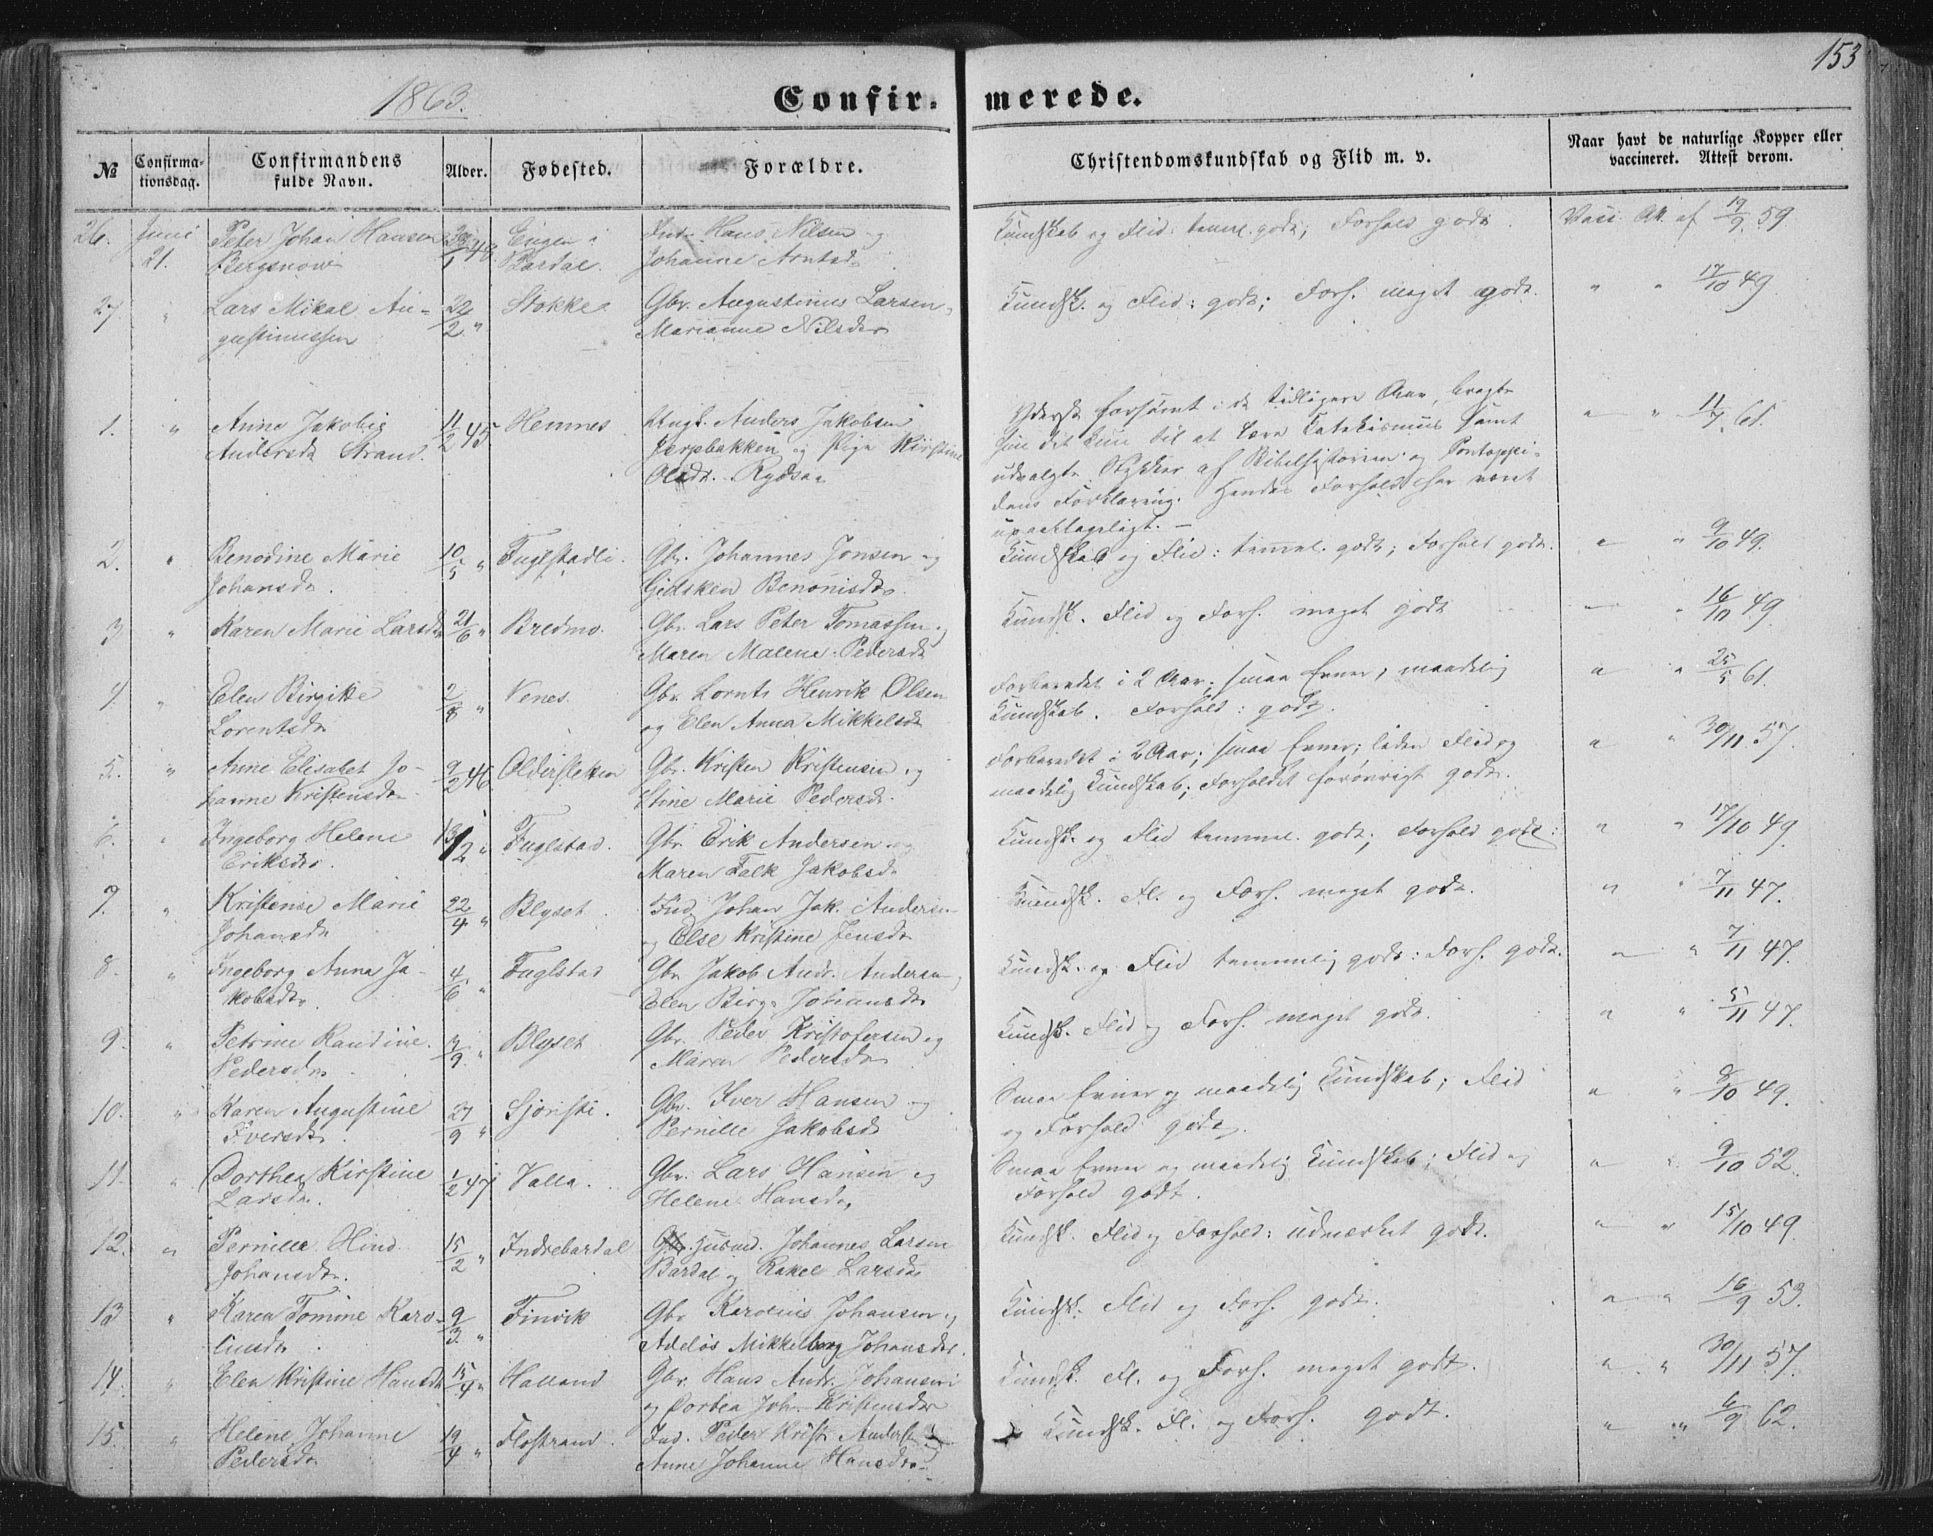 153
1863.
Confir- merede.
№ Confirma-tionsdag. Confirmandens fulde Navn. Alder. Fødested. Forældre. Christendomskundskab og Flid m. v. Naar havt de naturlige Kopper eller vaccineret. Attest derom.
26. Juni Peter Johan Hansen Engen i Ind. Hans Nilsen og Kundskab og Flid: temml. godt; Forhold godt. Vacc. Att. af 19/9 59.
21. Bergsnov Bardal. Johanne Arntsd.
27 " Lars Mikal Au- 22/2 " Stokke. Gbr. Augustinus Larsen, Kundsk. og Flid: godt; Forh. meget godt. " " 17/10 49
gustinussen Marianne Nilsdr
1. " Anne Jakobie 11/2 45 Hemnes Ungk. Anders Jakobsen Yderst forsømt i de tidligere Aar, bragte " " 11/7 61.
Andersdr Strand. Jerpbakken og Pige Kirstine hun det kun til at lære Katekismus samt
Olsdr. Rydsaa udvalgte Stykker af Bibelhistorien og Pontoppi-
dans Forklaring. Hendes Forhold har været
upaaklageligt. —
2. " Benodine Marie 10/5 " Fuglstadli. Gbr. Johannes Jonsen og Kundskab og Flid: temml. godt; Forhold godt. " " 9/10 49.
Johansdr. Gidsken Benonisdr.
3 " Karen Marie Larsdr 21/6 " Bredmo. Gbr. Lars Peter Tomassen og Kundsk. Flid og Forh. meget godt " " 16/10 49.
Maren Malene Pedersdr
4. " Elen Birgitte 2/8 " Nenes. Gbr. Lornts Henrik Olsen Forberedet i 2 Aar; smaa Evner, maadelig " " 25/5 61.
Lorentsdr og Elen Anna Mikkelsdr Kundskab. Forhold: godt.
5. " Anne Elisabet Jo- 9/2 46. Oldersletten Gbr. Kristen Kristensen og Forberedet i 2 Aar; smaa Evner; liden Flid og " " 30/11 57.
hanne Kristensdr Stine Marie Pedersdr. maadelig Kundskab; Forholdet forøvrigt godt.
6. " Ingeborg Helene " Fuglstad. Gbr. Erik Andersen og Kundsk. og Flid temml. godt; Forhold godt. " " 17/10 49.
Eriksdr. Maren Falk Jakobsdr
7. " Kristense Marie 22/4 " Blyset. Ind. Johan Jak. Andersen Kundsk. Fl. og Forh. meget godt. " " 7/11 47.
Johansdr og Else Kristine Jensdr
8. " Ingeborg Anna Ja- 4/6 " Fuglstad Gbr. Jakob Andr. Andersen, Kundsk. og Flid temmelig godt: Forh. godt. " " 7/11 47.
kobsdr. Elen Birg. Johansdr
9. " Petrine Randine Blyset Gbr. Peder Kristofersen og Kundsk. Flid og Forh. meget godt. " " 5/11 47.
Pedersdr. Maren Pedersdr
10. " Karen Augustine 27/9 " Sjøristi. Gbr. Iver Hansen og Smaa Evner og maadelig Kundskab; Flid " " 8/10 49.
Iversdr. Pernille Jakobsdr og Forhold godt.
11. " Dorthea Kirstine 1/2 47 Valla. Gbr. Lars Hansen og Smaa Evner og maadelig Kundskab; Flid og " " 9/10 52.
Larsdr. Helene Hansdr, Forhold godt.
12. " Pernille Hind 15/2 " Indrebardal Husmd. Johannes Larsen Kundsk. Flid og Forhold: udmerket godt. " " 15/10 49.
Johansdr. Bardal og Rakel Larsdr
13 " Karen Tomine Karo- 9/3. " Finvik Gbr. Karolius Johansen og Kundsk. Flid og Forh. godt. " " 16/9 53.
liusdr Adelos Mikkelborg Johansdr.
14. " Elen Kristine Hansdr 15/4 " Halland Gbr. Hans Andr. Johansen Kundsk. Fl. og Forh. meget godt. " " 30/11 57.
og Dortea Joh. Kristensdr
15. " Helene Johanne 19/4 " Flostrand. Ind. Peder Krist. Anders Kundsk. Fl. og Forh. godt. " " 6/9 62.
Pedersdr Anne Johanne Hansdr.